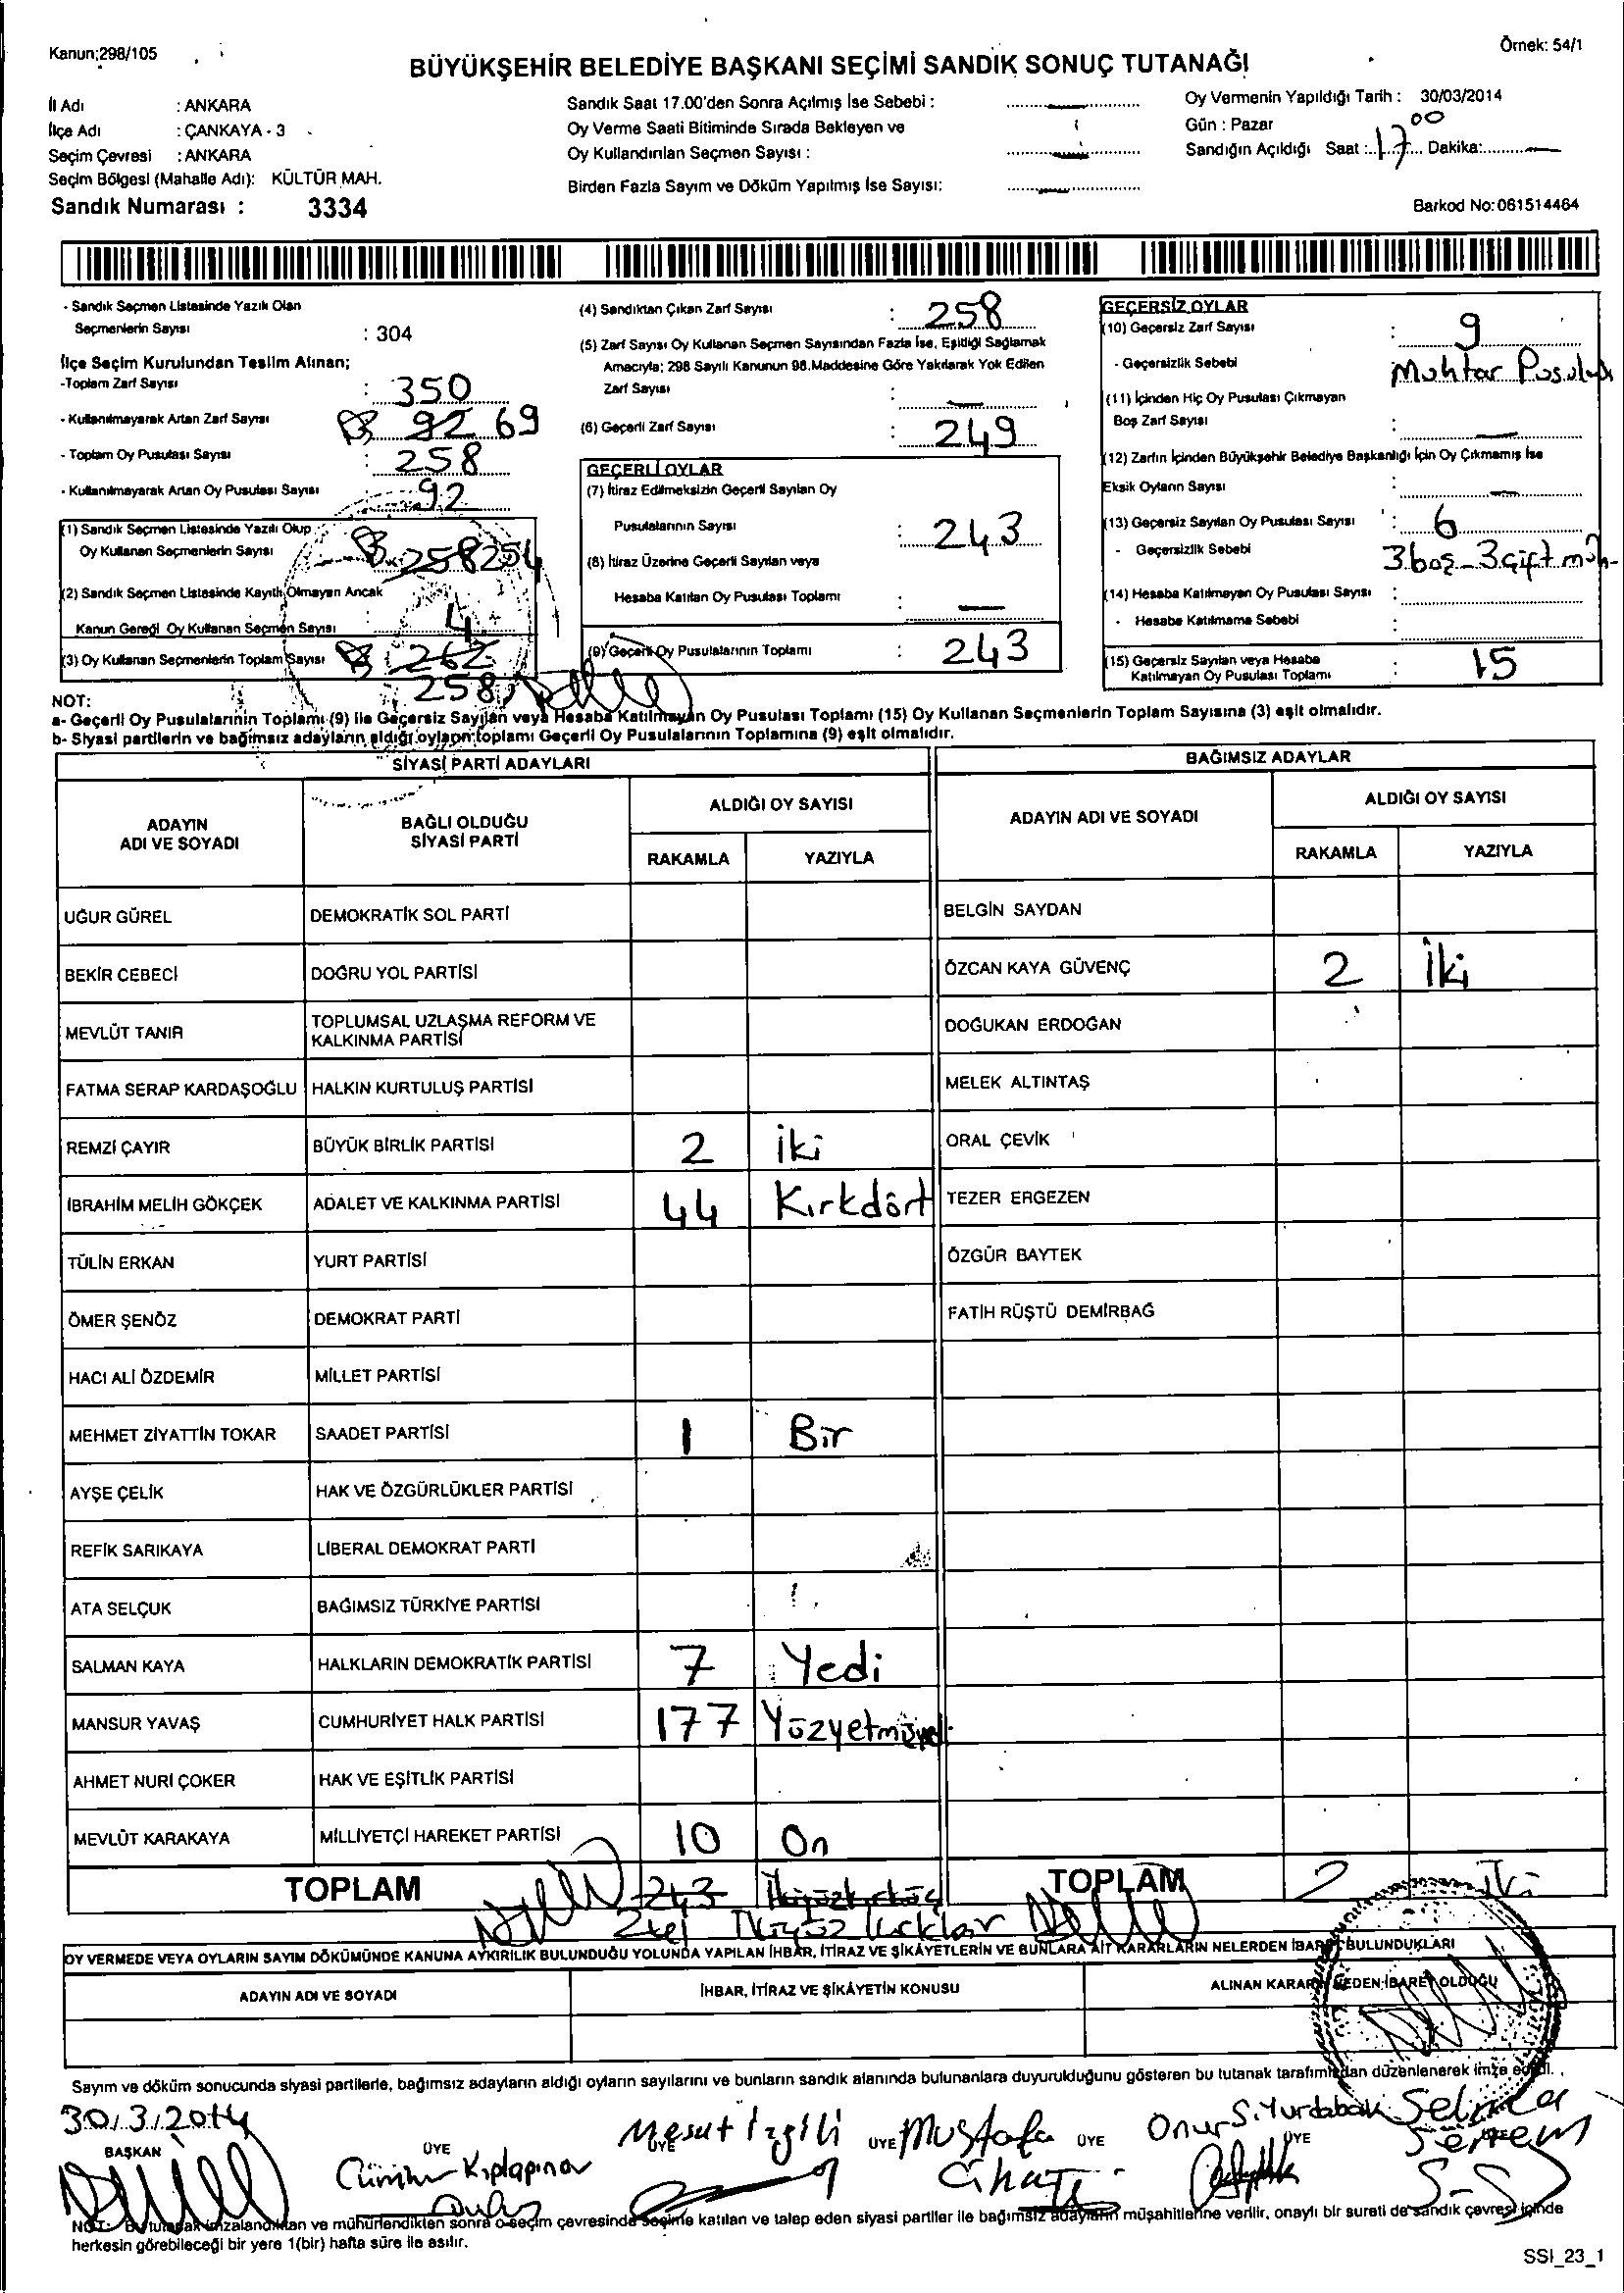 Kanun;298/105
Örnek: 54/1
BÜYÜKŞEHİR BELEDİYE BAŞKANI SEÇİMİ SANDIK SONUÇ TUTANAĞI
İl Adı : ANKARA
İlçe Adı : ÇANKAYA - 3
Seçim Çevresi : ANKARA
Seçim Bölgesi (Mahalle Adı): KÜLTÜR MAH.
Sandık Numarası : 3334
Sandık Saat 17.00'den Sonra Açılmış İse Sebebi :
Oy Verme Saati Bitiminde Sırada Bekleyen ve
Oy Kullandırılan Seçmen Sayısı :
Birden Fazla Sayım ve Döküm Yapılmış İse Sayısı:
Oy Vermenin Yapıldığı Tarih : 30/03/2014
Gün : Pazar
Sandığın Açıldığı Saat : 17 00 Dakika:
Barkod No:061514464
- Sandık Seçmen Listesinde Yazılı Olan
Seçmenlerin Sayısı : 304
İlçe Seçim Kurulundan Teslim Alınan;
-Toplam Zarf Sayısı : 350
- Kullanılmayarak Artan Zarf Sayısı 92 69
- Toplam Oy Pusulası Sayısı : 258
- Kullanılmayarak Artan Oy Pusulası Sayısı : 92
(1) Sandık Seçmen Listesinde Yazılı Olup
Oy Kullanan Seçmenlerin Sayısı : 258 254
(2) Sandık Seçmen Listesinde Kayıtlı Olmayan Ancak
Kanun Gereği Oy Kullanan Seçmen Sayısı : 4
(3) Oy Kullanan Seçmenlerin Toplam Sayısı 262
258
(4) Sandıktan Çıkan Zarf Sayısı : 258
(5) Zarf Sayısı Oy Kullanan Seçmen Sayısından Fazla İse, Eşitliği Sağlamak
Amacıyla; 298 Sayılı Kanunun 98.Maddesine Göre Yakılarak Yok Edilen
Zarf Sayısı : —
(6) Geçerli Zarf Sayısı : 249
GEÇERLİ OYLAR
(7) İtiraz Edilmeksizin Geçerli Sayılan Oy
Pusulalarının Sayısı : 243
(8) İtiraz Üzerine Geçerli Sayılan veya
Hesaba Katılan Oy Pusulası Toplamı : —
(9) Geçerli Oy Pusulalarının Toplamı : 243
GEÇERSİZ OYLAR
(10) Geçersiz Zarf Sayısı : 9
- Geçersizlik Sebebi Muhtar Pusulası
(11) İçinden Hiç Oy Pusulası Çıkmayan
Boş Zarf Sayısı : —
(12) Zarfın İçinden Büyükşehir Belediye Başkanlığı İçin Oy Çıkmamış İse
Eksik Oyların Sayısı : —
(13) Geçersiz Sayılan Oy Pusulası Sayısı : 6
- Geçersizlik Sebebi 3 boş - 3 çift müh-
(14) Hesaba Katılmayan Oy Pusulası Sayısı :
- Hesaba Katılmama Sebebi :
(15) Geçersiz Sayılan veya Hesaba
Katılmayan Oy Pusulası Toplamı : 15
NOT:
a- Geçerli Oy Pusulalarının Toplamı (9) ile Geçersiz Sayılan veya Hesaba Katılmayan Oy Pusulası Toplamı (15) Oy Kullanan Seçmenlerin Toplam Sayısına (3) eşit olmalıdır.
b- Siyasi partilerin ve bağımsız adayların aldığı oyların toplamı Geçerli Oy Pusulalarının Toplamına (9) eşit olmalıdır.
SİYASİ PARTİ ADAYLARI
BAĞIMSIZ ADAYLAR
ADAYIN
ADI VE SOYADI
BAĞLI OLDUĞU
SİYASİ PARTİ
ALDIĞI OY SAYISI
RAKAMLA YAZIYLA
ADAYIN ADI VE SOYADI
ALDIĞI OY SAYISI
RAKAMLA YAZIYLA
UĞUR GÜREL DEMOKRATİK SOL PARTİ BELGİN SAYDAN
BEKİR CEBECİ DOĞRU YOL PARTİSİ ÖZCAN KAYA GÜVENÇ 2 İki
MEVLÜT TANIR TOPLUMSAL UZLAŞMA REFORM VE
KALKINMA PARTİSİ DOĞUKAN ERDOĞAN
FATMA SERAP KARDAŞOĞLU HALKIN KURTULUŞ PARTİSİ MELEK ALTINTAŞ
REMZİ ÇAYIR BÜYÜK BİRLİK PARTİSİ 2 iki ORAL ÇEVİK
İBRAHİM MELİH GÖKÇEK ADALET VE KALKINMA PARTİSİ 44 Kırkdört TEZER ERGEZEN
TÜLİN ERKAN YURT PARTİSİ ÖZGÜR BAYTEK
ÖMER ŞENÖZ DEMOKRAT PARTİ FATİH RÜŞTÜ DEMİRBAĞ
HACI ALİ ÖZDEMİR MİLLET PARTİSİ
MEHMET ZİYATTİN TOKAR SAADET PARTİSİ 1 Bir
AYŞE ÇELİK HAK VE ÖZGÜRLÜKLER PARTİSİ
REFİK SARIKAYA LİBERAL DEMOKRAT PARTİ
ATA SELÇUK BAĞIMSIZ TÜRKİYE PARTİSİ
SALMAN KAYA HALKLARIN DEMOKRATİK PARTİSİ 7 Yedi
MANSUR YAVAŞ CUMHURİYET HALK PARTİSİ 177 Yüzyetmişyedi
AHMET NURİ ÇOKER HAK VE EŞİTLİK PARTİSİ
MEVLÜT KARAKAYA MİLLİYETÇİ HAREKET PARTİSİ 10 On
TOPLAM 243 İkiyüzkırküç TOPLAM 2 İki
OY VERMEDE VEYA OYLARIN SAYIM DÖKÜMÜNDE KANUNA AYKIRILIK BULUNDUĞU YOLUNDA YAPILAN İHBAR, İTİRAZ VE ŞİKÂYETLERİN VE BUNLARA AİT KARARLARIN NELERDEN İBARET BULUNDUKLARI
ADAYIN ADI VE SOYADI İHBAR, İTİRAZ VE ŞİKÂYETİN KONUSU ALINAN KARARIN NEDEN İBARET OLDUĞU
Sayım ve döküm sonucunda siyasi partilerle, bağımsız adayların aldığı oyların sayılarını ve bunların sandık alanında bulunanlara duyurulduğunu gösteren bu tutanak tarafımızdan düzenlenerek imza edildi.
30/3/2014
BAŞKAN ÜYE ÜYE ÜYE ÜYE ÜYE
Mesut İzgili Mustafa Cihat Onur S. Selinca
NOT: Bu tutanak imzalandıktan ve mühürlendikten sonra o seçim çevresinde seçime katılan ve talep eden siyasi partiler ile bağımsız adayların müşahitlerine verilir, onaylı bir sureti de sandık çevresi içinde
herkesin görebileceği bir yere 1(bir) hafta süre ile asılır.
SSI_23_1